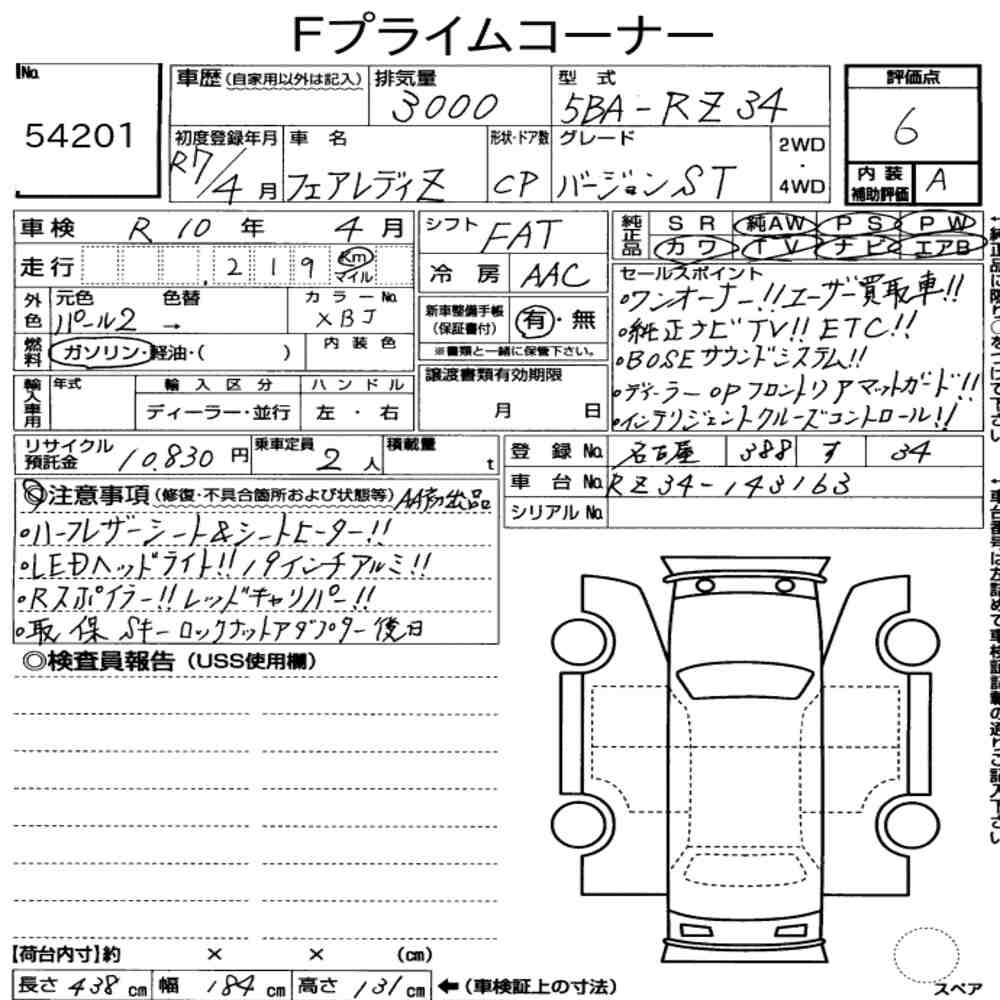 Fプライムコーナー
No. 54201
車歴(自家用以外は記入) 排気量 3000 型式 5BA-RZ34 評価点 6
初度登録年月 R7/4月 車名 フェアレディZ 形状・ドア数 CP グレード バージョンST 2WD・4WD 内装補助評価 A
車検 R10年 4月 シフト FAT 純正品 SR 純AW PS PW
カワ TV ナビ エアB
走行 219 Km マイル 冷房 AAC
外色 元色 パール2 色替 → カラーNo. XBJ 新車整備手帳(保証書付) 有・無
燃料 ガソリン・軽油・( ) 内装色 ※書類と一緒に保管下さい。
セールスポイント
・ワンオーナー!!ユーザー買取車!!
・純正ナビTV!!ETC!!
・BOSEサウンドシステム!!
・ディーラーOPフロントリアマットガード!!
・インテリジェントクルーズコントロール!!
輸入車用 年式 輸入区分 ディーラー・並行 ハンドル 左・右 譲渡書類有効期限 月 日
リサイクル預託金 10.830円 乗車定員 2人 積載量 t
登録No. 名古屋 388 す 34
車台No. RZ34-143163
シリアルNo.
◎注意事項(修復・不具合箇所および状態等)AA初出品
・ハーフレザーシート&シートヒーター!!
・LEDヘッドライト!!19インチアルミ!!
・Rスポイラー!!レッドキャリパー!!
・取 保 Sキー ロックナットアダプター後日
◎検査員報告(USS使用欄)
【荷台内寸】約 × × (cm)
長さ 438cm 幅 184cm 高さ 131cm ←(車検証上の寸法)
スペア
←純正品に限り○をつけて下さい
←車台番号は左詰めで車検証記載の通りご記入下さい